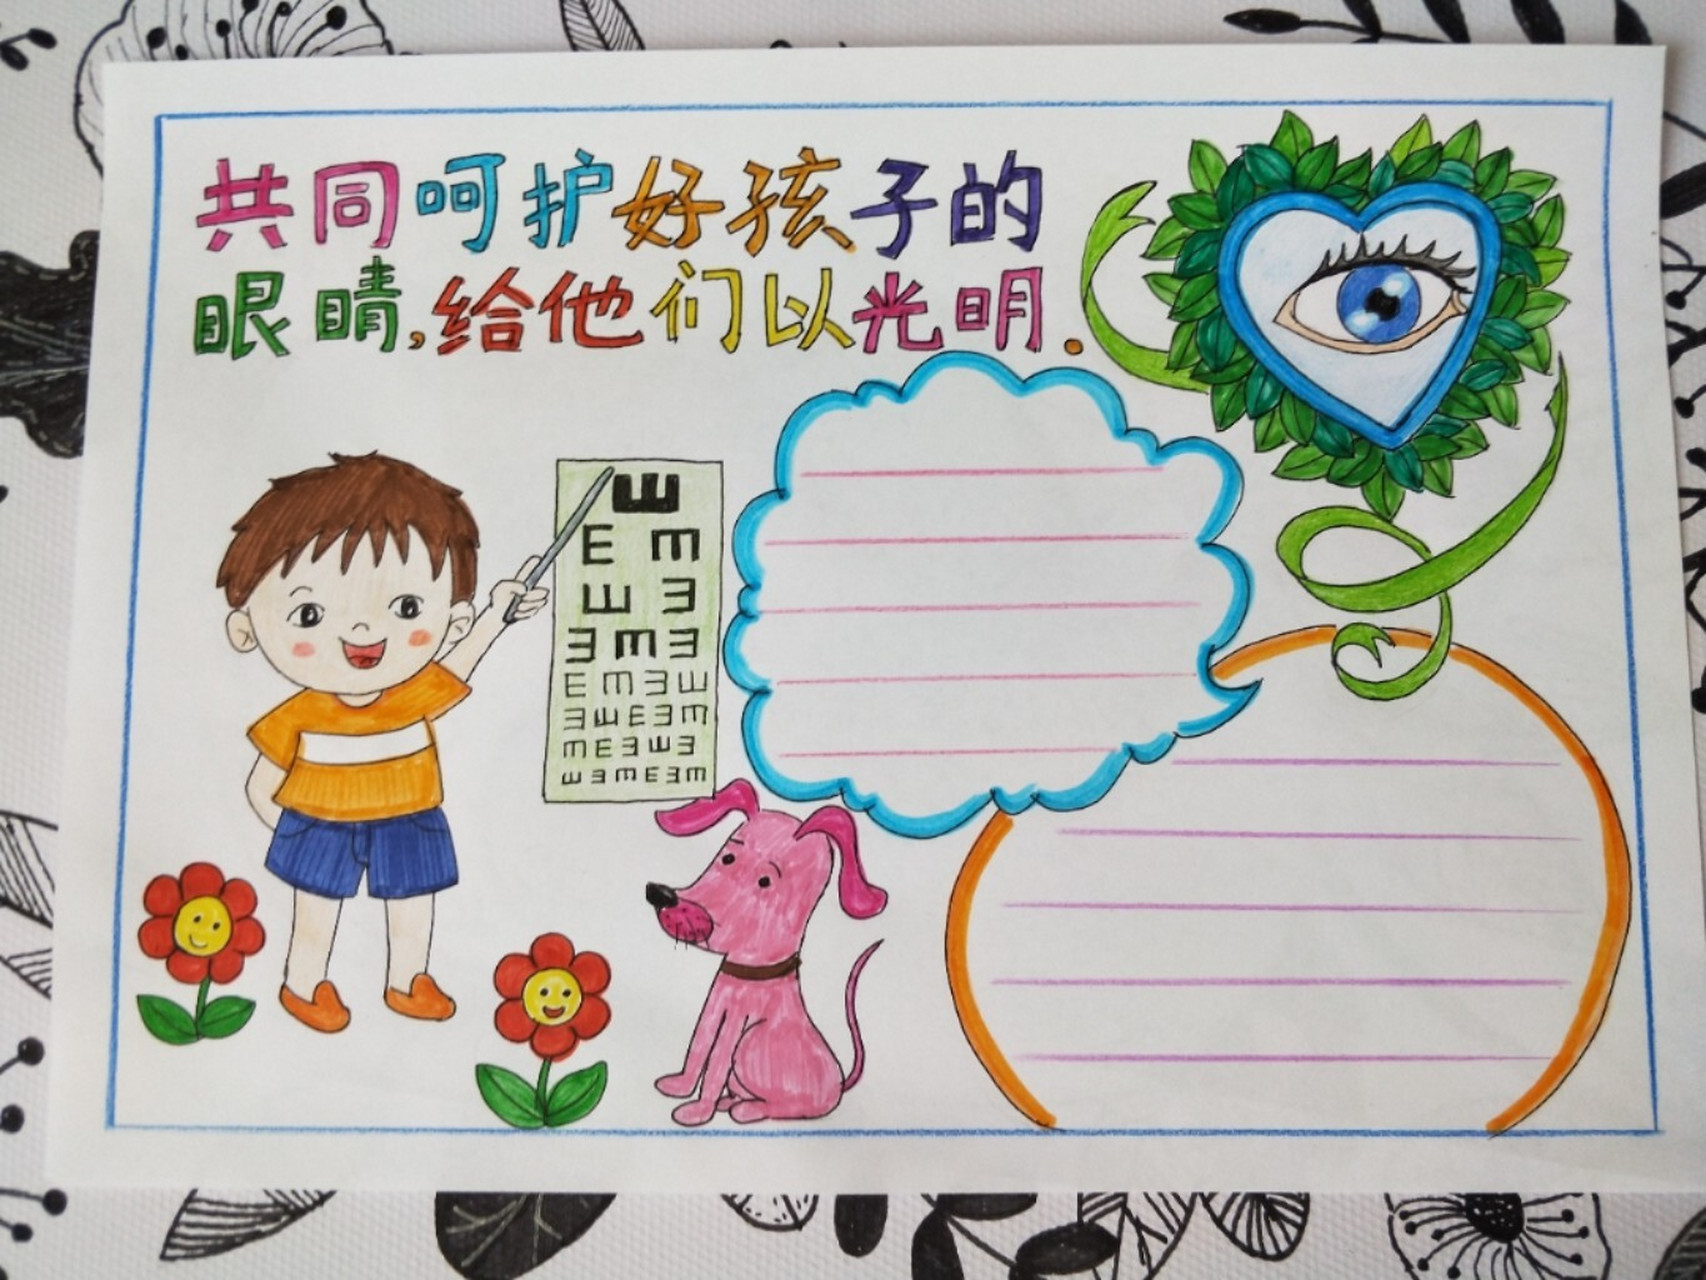 共同呵护好孩子的
眼睛,给他们以光明.
E
E E
E E
E E E
E E E E
E E E E E
E E E E E
E E E E E E